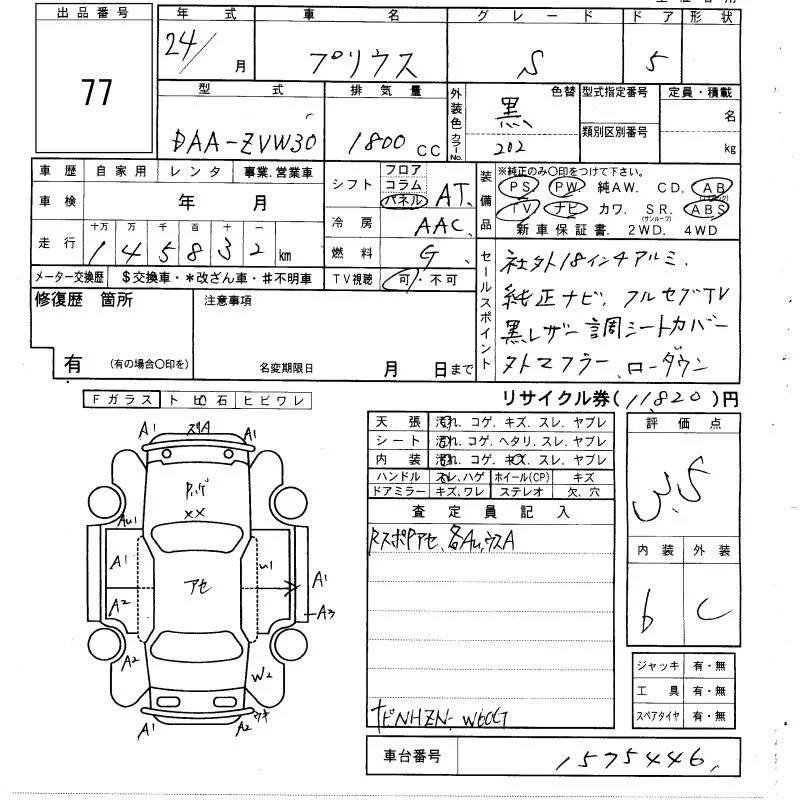 出品番号
77
年式 車名 グレード ドア 形状
24/ 月 プリウス S 5
型式 排気量 外装色 色替 型式指定番号 定員・積載
DAA-ZVW30 1800 CC 黒 名
カラーNo. 202 類別区別番号 kg
車歴 自家用 レンタ 事業.営業車
車検 年 月
走行 十万 万 千 百 十 一
1 4 5 8 3 2 km
メーター交換歴 $交換車・*改ざん車・#不明車
シフト フロア コラム パネル AT.
冷房 AAC
燃料 G
TV視聴 可・不可
装備品 ※純正のみ○印をつけて下さい。
PS PW 純AW. CD. AB
TV ナビ カワ. SR. ABS
(サンルーフ)
新車保証書. 2WD. 4WD
セールスポイント
社外18インチアルミ.
純正ナビ. フルセグTV
黒レザー調シートカバー
マフラー、ローダウン
修復歴 箇所
有 (有の場合○印を)
注意事項
名変期限日 月 日まで
リサイクル券(11,820)円
Fガラス トビ石 ヒビワレ
天張 汚れ. コゲ. キズ. スレ. ヤブレ
シート 汚れ. コゲ. ヘタリ. スレ. ヤブレ
内装 汚れ. コゲ. キズ. スレ. ヤブレ
ハンドル スレ,ハゲ ホイール(CP) キズ
ドアミラー キズ,ワレ ステレオ 欠、穴
査定員記入
RスポPアセ、各Au,ウスA
ナビNHZN-W60G
評価点
3.5
内装 外装
b C
ジャッキ 有・無
工具 有・無
スペアタイヤ 有・無
車台番号 1575446
A1 ズリA A1
Pハゲ
××
Au1
A1 U1 A1
アセ
A2 A3
A2 W2
A1 ウキ A2